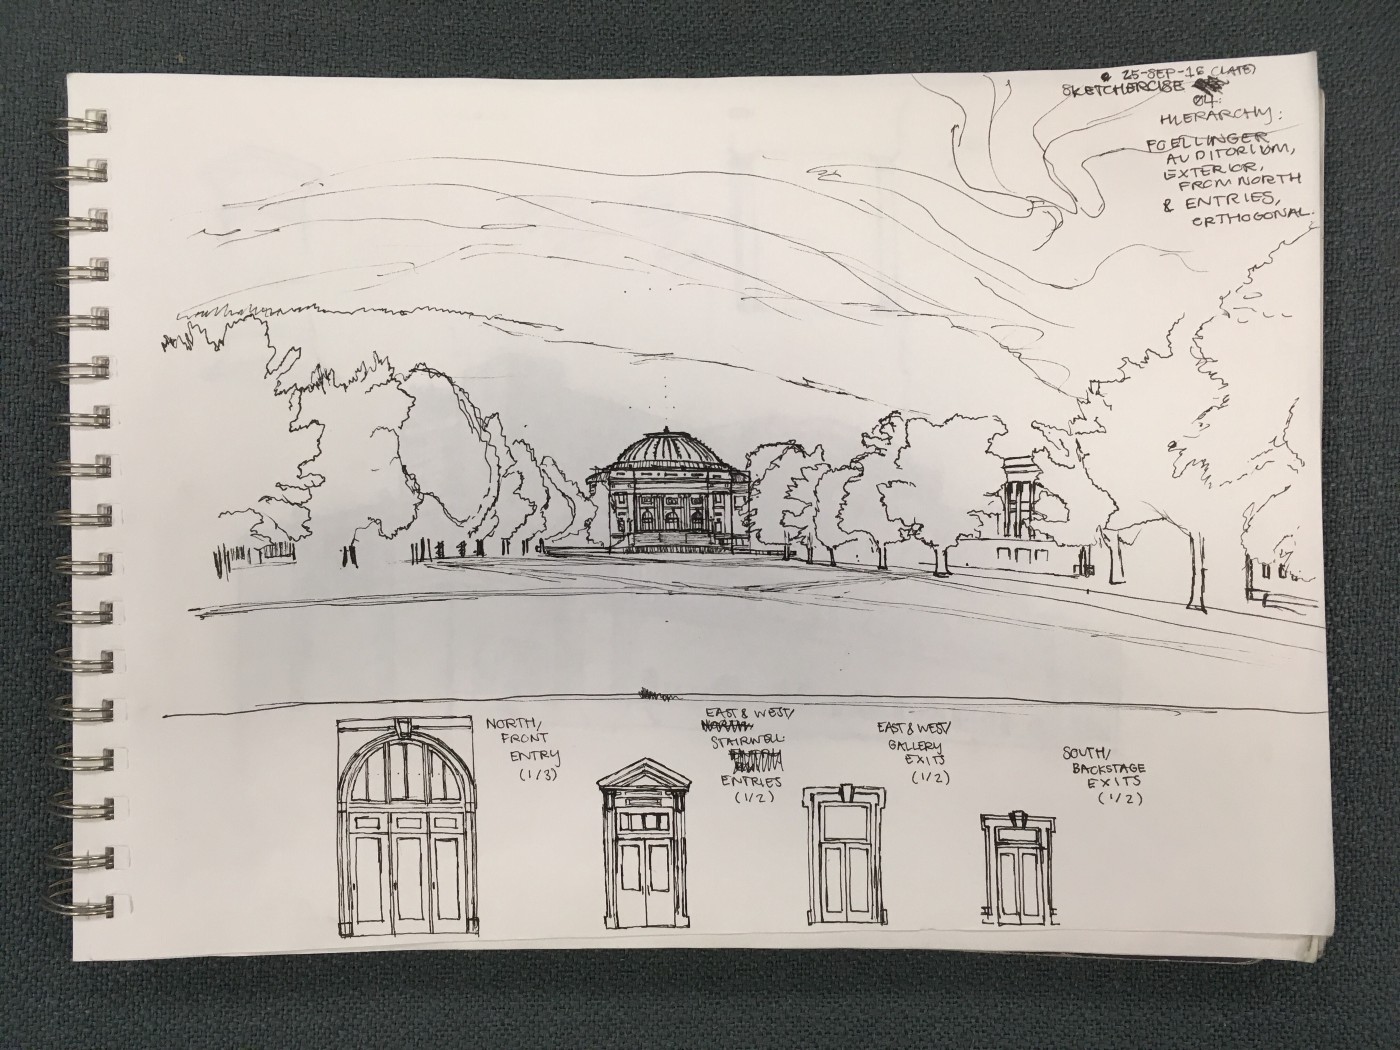 25-SEP-16 (LATE)
SKETCHERCISE
04:
HIERARCHY:
FOELLINGER
AUDITORIUM,
EXTERIOR,
FROM NORTH
& ENTRIES,
ORTHOGONAL.
NORTH/
FRONT
ENTRY
(1/3)
EAST & WEST/
NORTH
STAIRWELL
ENTRIES
(1/2)
EAST & WEST/
GALLERY
EXITS
(1/2)
SOUTH/
BACKSTAGE
EXITS
(1/2)